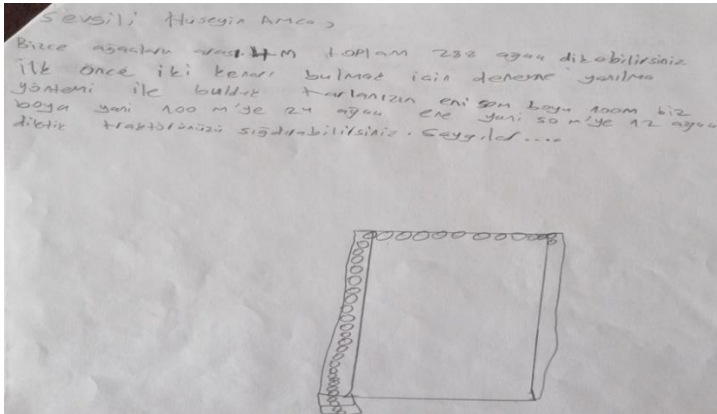 Sevgili Hüseyin Amca,
Bizce ağaçların arası 4M toplam 288 ağaç dikebilirsiniz
ilk önce iki kenarı bulmak için deneme yanılma
yöntemi ile bulduk tarlanızın eni 50m boyu 100m biz
boya yani 100 m'ye 24 ağaç ene yani 50 m'ye 12 ağaç
diktik traktörünüzü sığdırabilirsiniz. Saygılar....